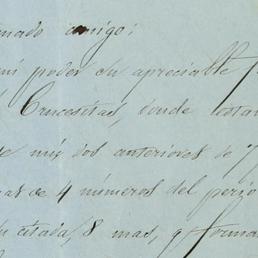 mado amigo:
mi poder su apreciable
Crucesitas, donde
de mis dos anteriores de 7
mas de 4 números del
citada, 8 mas, q forma